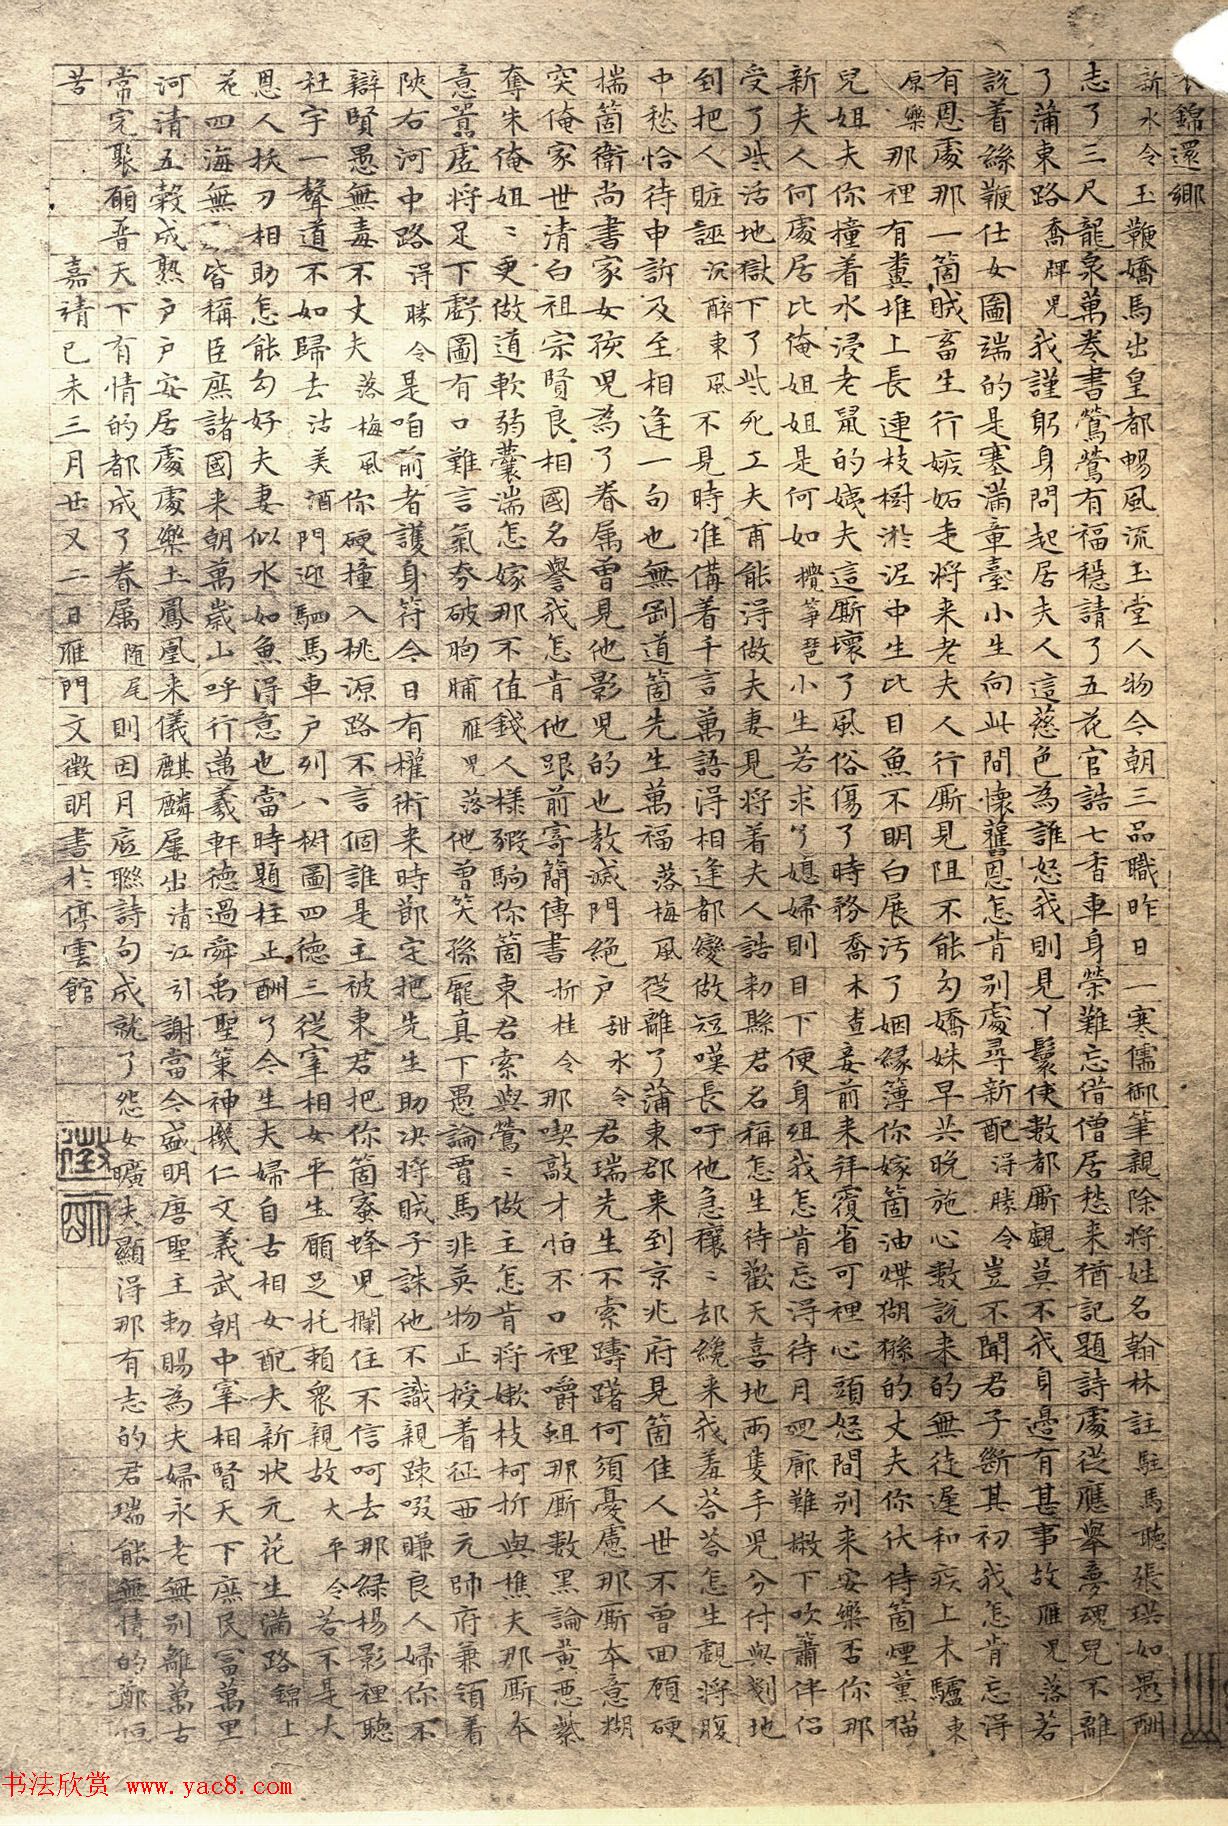 衣錦還鄉
新水令玉鞭嬌馬出皇都暢風流玉堂人物今朝三品職昨日一寒儒御筆親除將姓名翰林註駐馬聽張珙如愚酬
志了三尺龍泉萬卷書鶯鶯有福穩請了五花官誥七香車身榮難忘借僧居愁来猶記題詩處從應舉夢魂兒不離
了蒲東路喬牌兒我謹躬身問起居夫人這慈色為誰怒我則見丫鬟使數都厮覷莫不我身邊有甚事故雁兒落若
說着絲鞭仕女圖端的是塞滿章臺小生向此間懷舊恩怎肯别處尋新配得勝令豈不聞君子斷其初我怎肯忘得
有恩處那一箇賊畜生行嫉妬走將来老夫人行厮見阻不能勾嬌姝早共晚施心數說来的無徒遲和疾上木驢東
原樂那裡有糞堆上長連枝樹淤泥中生比目魚不明白展污了姻緣簿你嫁箇油煠猢猻的丈夫你伏侍箇煙薰猫
兒姐夫你撞着水浸老鼠的姨夫這厮壞了風俗傷了時務喬木查妾前来拜覆省可裡心頭怒間别来安樂否你那
新夫人何處居比俺姐姐是何如攪箏琶小生若求了媳婦則目下便身殂我怎肯忘得待月廻廊難撇下吹簫伴侣
受了些活地獄下了些死工夫甫能得做夫妻見將着夫人誥勑縣君名稱怎生待歡天喜地兩隻手兒分付與剗地
到把人贓誣沉醉東風不見時准備着千言萬語得相逢都變做短嘆長吁他急穰〻却纔来我羞荅荅怎生覷將腹
中愁恰待申訴及至相逢一句也無剛道箇先生萬福落梅風從離了蒲東郡来到京兆府見箇佳人世不曾回顧硬
揣箇衛尚書家女孩兒為了眷属曾見他影兒的也教滅門絶户甜水令君瑞先生不索躊躇何須憂慮那厮本意糊
突俺家世清白祖宗賢良相國名譽我怎肯他跟前寄簡傳書折桂令那喫敲才怕不口裡嚼蛆那厮數黑論黄惡紫
奪朱俺姐〻更做道軟弱囊湍怎嫁那不值錢人樣豭駒你箇東君索與鶯〻做主怎肯將嫩枝柯折與樵夫那厮本
意囂虛將足下虧圖有口難言氣夯破胸脯雁兒落他曾笑孫龐真下愚論賈馬非英物正授着征西元帥府兼領着
陜右河中路得勝令是咱前者護身符今日有權術来時節定把先生助决將賊子誅他不識親踈啜賺良人婦你不
辯賢愚無毒不丈夫落梅風你硬撞入桃源路不言個誰是主被東君把你箇蜜蜂兒攔住不信呵去那綠楊影裡聽
杜宇一聲道不如歸去沽美酒門迎駟馬車户列八樹圖四德三從宰相女平生願足托賴衆親故大平令若不是大
恩人拔刀相助怎能勾好夫妻似水如魚得意也當時題柱正酬了今生夫婦自古相女配夫新狀元花生滿路錦上
花四海無〻皆稱臣庶諸國来朝萬歲山呼行邁羲軒德過舜禹聖策神機仁文義武朝中宰相賢天下庶民富萬里
河清五穀成熟户户安居處處樂土鳳凰来儀麒麟屢出清江引謝當今盛明唐聖主勑賜為夫婦永老無别離萬古
常完聚願普天下有情的都成了眷属随尾則因月底聯詩句成就了怨女曠夫顯得那有志的君瑞能無情的鄭恒
苦
嘉靖己未三月廿又二日雁門文徵明書於停雲館
徵明
书法欣赏 www.yac8.com